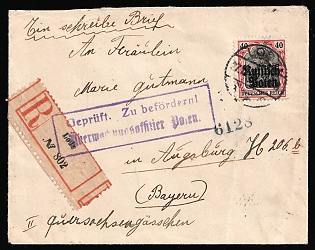 Ein schreibe Brief
An Fräulein
Marie Gutmann
40 40
Russisch-
Polen
DEUTSCHES REICH
R
Lodz
№ 802
Geprüft. Zu befördern!
Überwachungsoffizier Posen.
6128
in Augsburg H 206.b
(Bayern)
II Querſachsengässchen